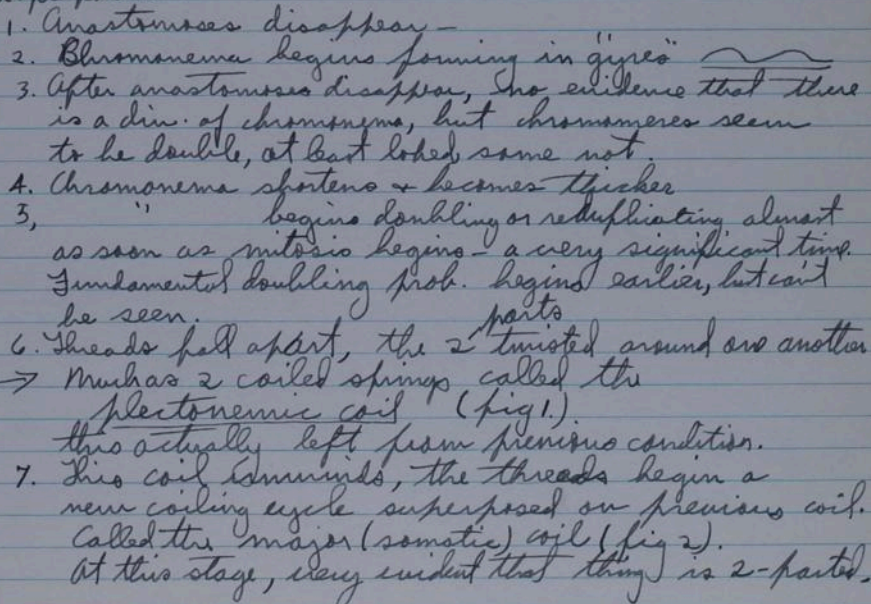 1. Anastomoses disappear -
2. Chromonema begins forming in "gyres"
3. After anastomoses disappear, no evidence that there
is a div. of chromonema, but chromomeres seem
to be double, at least lobed some not.
4. Chromonema shortens + becomes thicker
5, " begins doubling or reduplicating almost
as soon as mitosis begins - a very significant time.
Fundamental doubling prob. begins earlier, but can't
be seen.
6. Threads fall apart, the 2 parts twisted around one another
→ Much as 2 coiled springs called the
plectonemic coil (fig 1.)
this actually left from previous condition.
7. This coil unwinds, the threads begin a
new coiling cycle superposed on previous coil.
Called the major (somatic) coil (fig 2).
At this stage, very evident that thing is 2-parted.